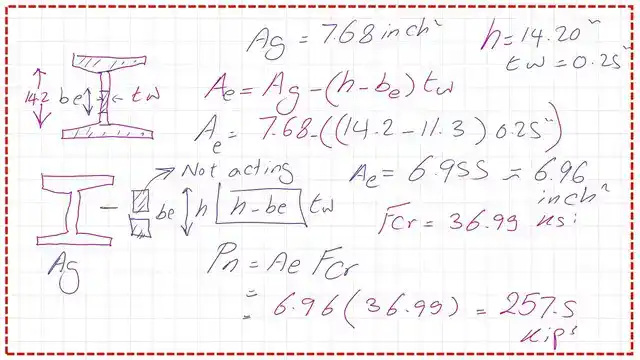 Ag = 7.68 inch²
h = 14.20"
tw = 0.25"
14.2 be tw
Ae = Ag - (h - be) tw
Ae = 7.68 - ((14.2 - 11.3) 0.25")
Not acting
Ae = 6.955 ≈ 6.96 inch²
be h h - be tw
Fcr = 36.99 ksi
Ag
Pn = Ae Fcr
= 6.96 (36.99) = 257.5 kips